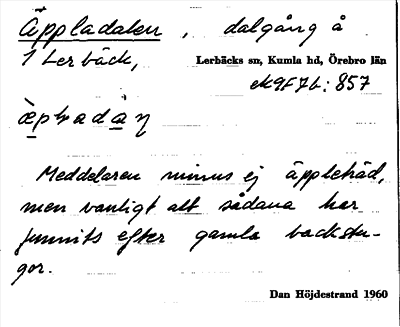 Äppladalen, dalgång å
1 Lerbäck, Lerbäcks sn, Kumla hd, Örebro län
M9F7b: 857
Meddelaren minns ej äppleträd,
men vanligt att sådana har
funnits efter gamla backstu-
gor.
Dan Höjdestrand 1960